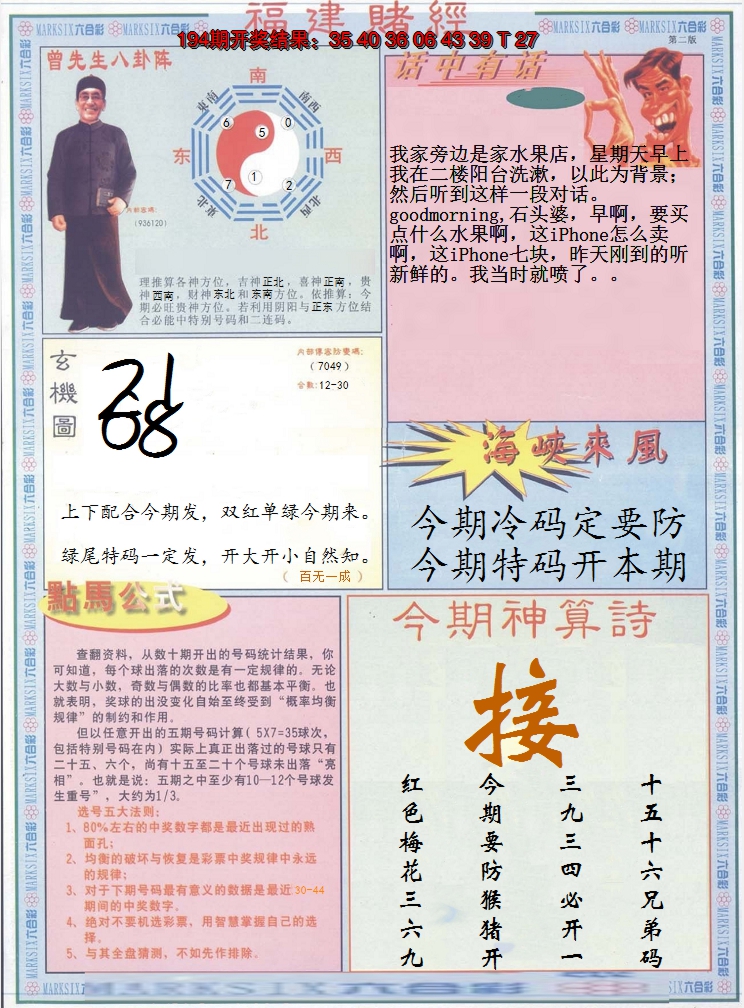 福建賭經
194期开奖结果：35 40 36 06 43 39 T 27
第二版
MARKSIX六合彩
曾先生八卦阵
南
东南
西南
东
西
东北
西北
北
6
5
0
7
1
2
（936120）
理推算各神方位，吉神正北，喜神正南，贵
神西南，财神东北和东南方位。依推算：今
期必旺贵神方位。若利用阴阳与正东方位结
合必能中特别号码和二连码。
话中有话
我家旁边是家水果店，星期天早上
我在二楼阳台洗漱，以此为背景；
然后听到这样一段对话。
goodmorning,石头婆，早啊，要买
点什么水果啊，这iPhone怎么卖
啊，这iPhone七块，昨天刚到的听
新鲜的。我当时就喷了。。
玄機圖
21
68
内部傳密防變碼：
（7049）
合数：12-30
上下配合今期发，双红单绿今期来。
绿尾特码一定发，开大开小自然知。
（ 百无一成 ）
海峽來風
今期冷码定要防
今期特码开本期
點馬公式
查翻资料，从数十期开出的号码统计结果，你
可知道，每个球出落的次数是有一定规律的。无论
大数与小数，奇数与偶数的比率也都基本平衡。也
就表明，奖球的出没变化自始至终受到“概率均衡
规律”的制约和作用。
但以任意开出的五期号码计算（5X7=35球次，
包括特别号码在内）实际上真正出落过的号球只有
二十五、六个，尚有十五至二十个号球未出落“亮
相”。也就是说：五期之中至少有10—12个号球发
生重号”，大约为1/3。
选号五大法则：
1、80%左右的中奖数字都是最近出现过的熟
面孔；
2、均衡的破坏与恢复是彩票中奖规律中永远
的规律；
3、对于下期号码最有意义的数据是最近30-44
期间的中奖数字。
4、绝对不要机选彩票，用智慧掌握自己的选
择。
5、与其全盘猜测，不如先作排除。
今期神算詩
接
十五十六兄弟码
三九三四必开一
今期要防猴猪开
红色梅花三六九